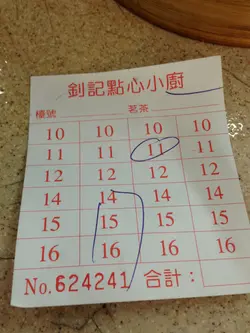 釗記點心小廚
檯號 茗茶
10 10 10 10
11 11 11 11
12 12 12 12
14 14 14 14
15 15 15 15
16 16 16 16
No. 624241 合計：